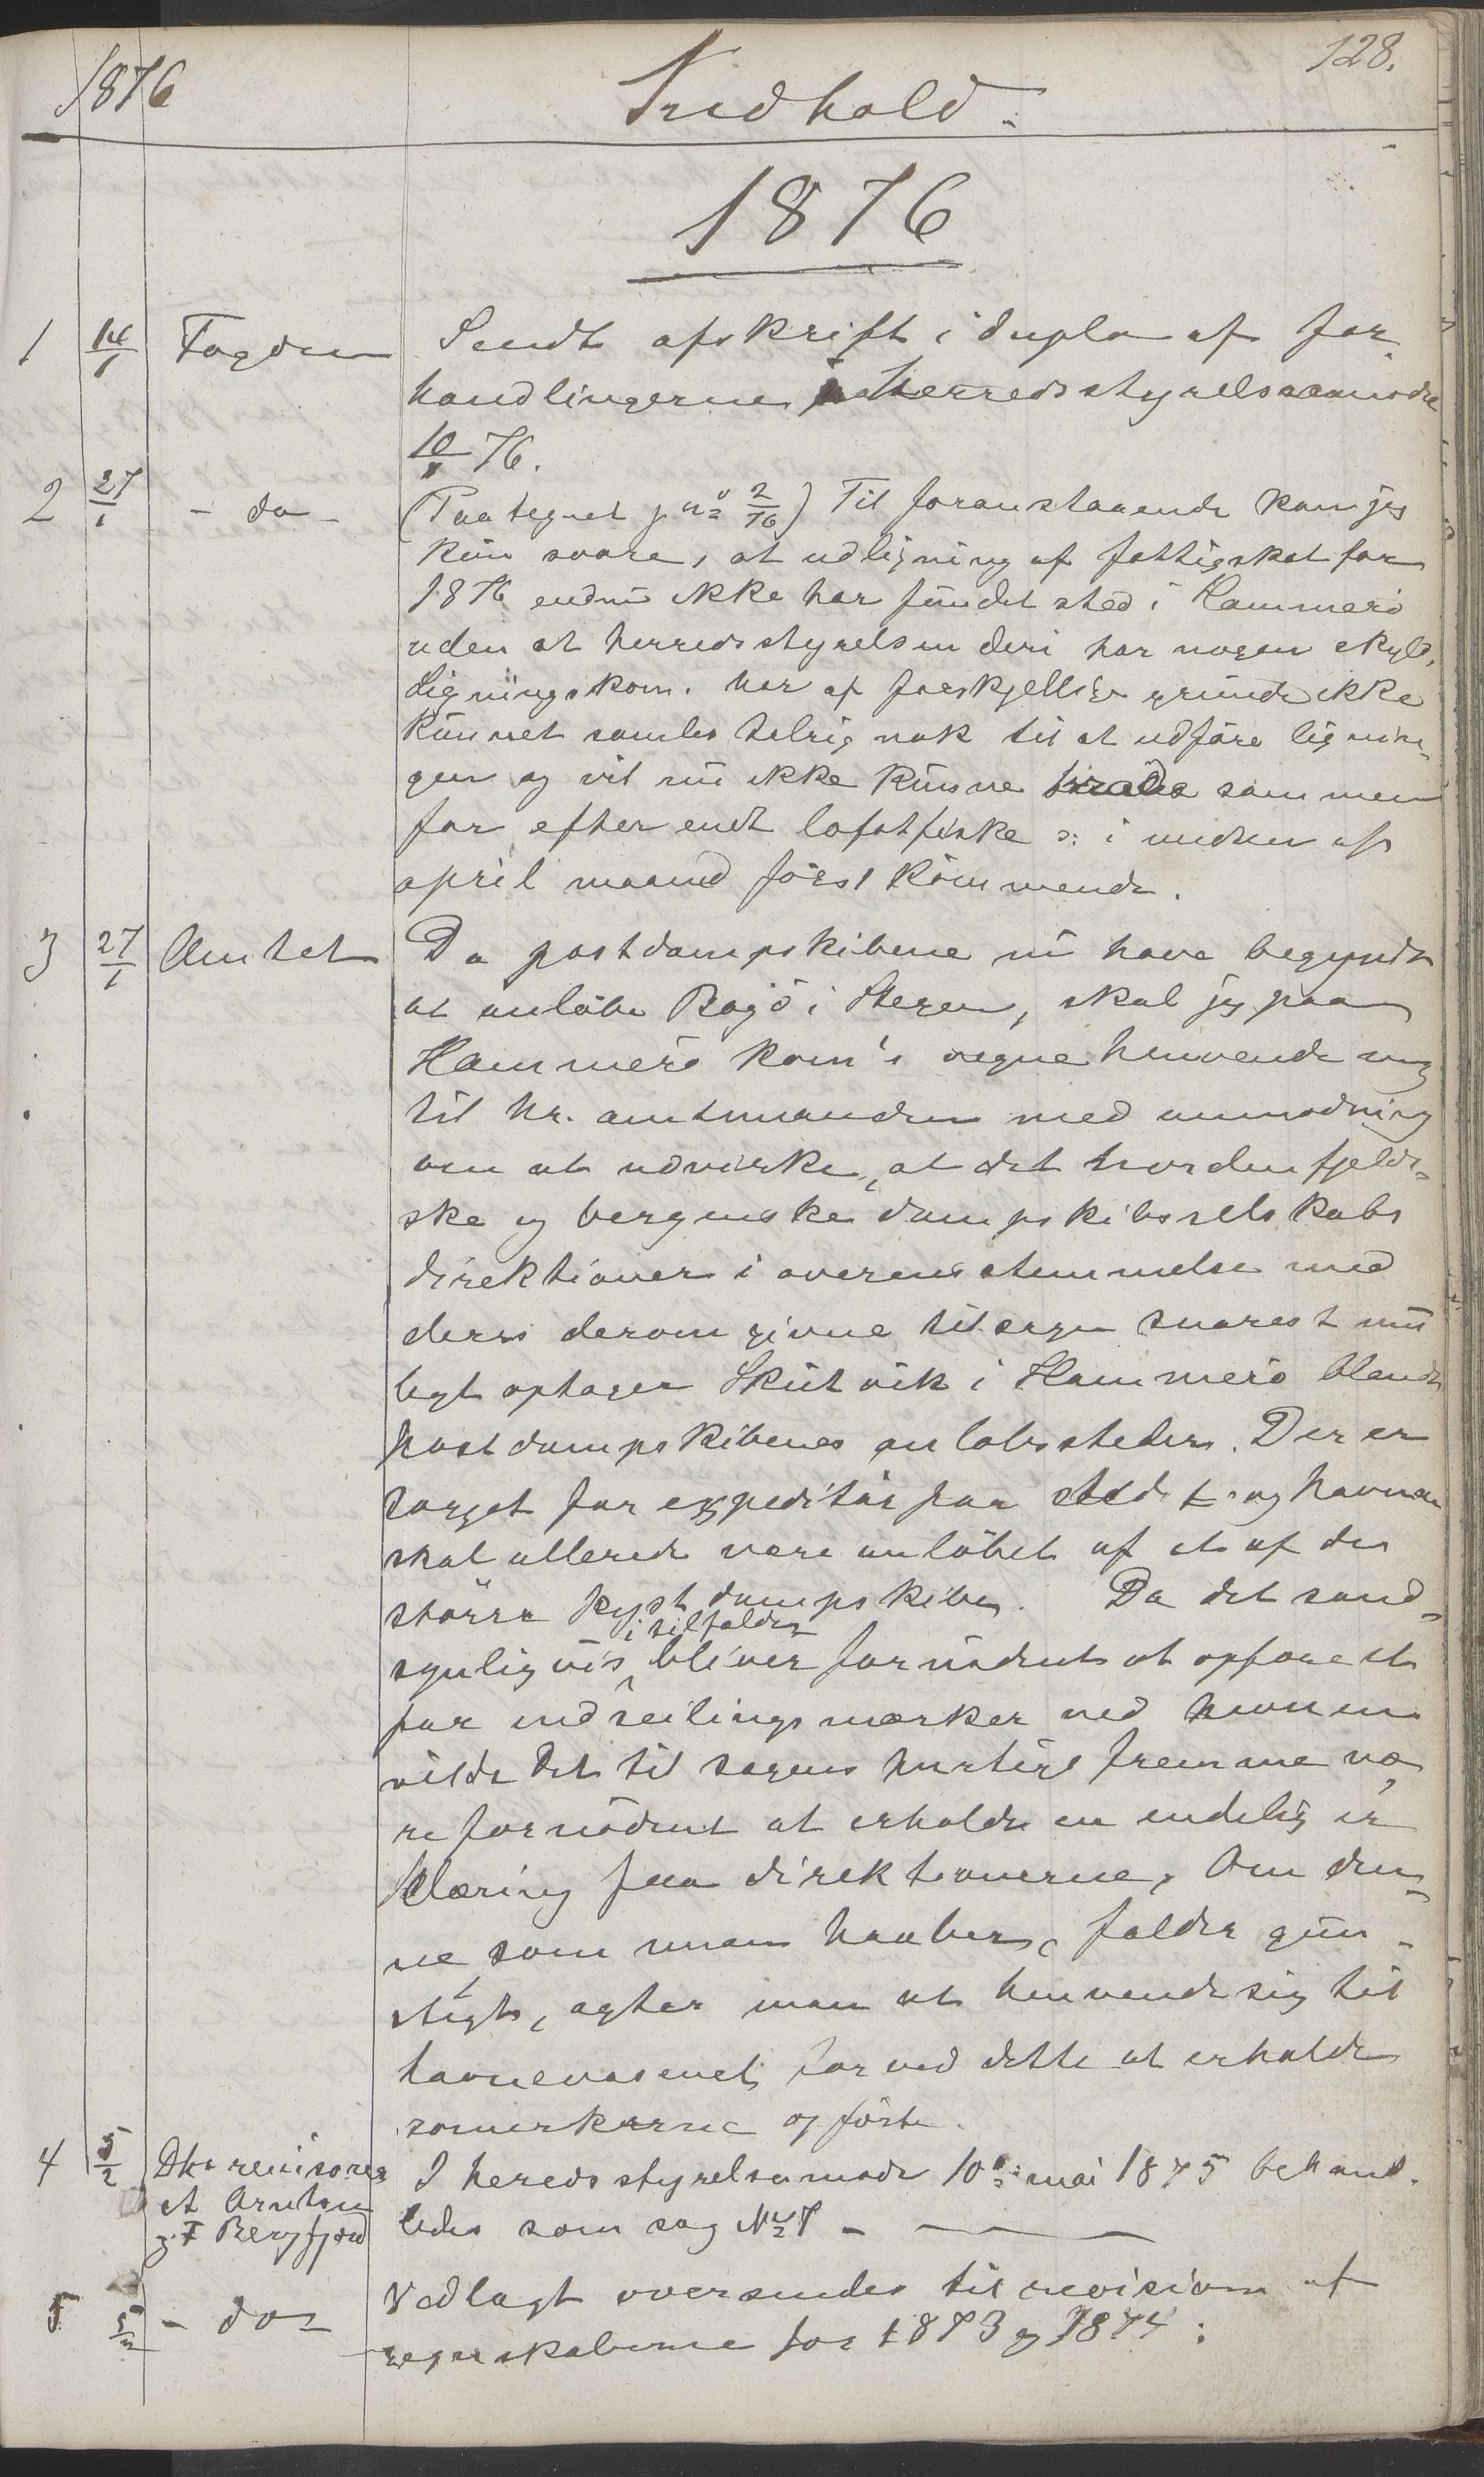 1876
Indhold.
128.
1876
1 14/1 Fogden Sendt afskrift i duplo af for-
handlingerne i herredsstyrelsesmöde
10/1 76.
2 27/1 - do - (Paategnet j n° 2/76) Til foranstaaende kan jeg
kun svare, at udligning af fattigskat for
1876 endnu ikke har fundet sted i Hammerö
uden at herredsstyrelsen deri har nogen skyld.
Ligningskom. har af forskjellige grunde ikke
kunnet samles talrig nok til at udföre lignin-
gen og vil nu ikke kunne träde sammen
för efter endt lofotfiske ɔ: i midten af
april maaned förstkommende.
3 27/1 Amtet Da postdampskibene nu have begyndt
at anlöbe Bogö i Stegen, skal jeg paa
Hammerö kom's vegne henvende mig
til hr. amtmanden med anmodning
om at udvirke, at det nordenfjeld-
ske og bergenske dampskibsselskabs
direktioner i overensstemmelse med
deres derom givne tilsagn snarest mu
ligt optager Skutvik i Hammerö blandt
postdampskibenes anlöbssteder. Der er
sörget for expeditör paa stedet og havnen
skal allerede være anlöbet af et af de
större kystdampskibe. Da det sand-
i tilfælde
synligvis bliver fornödent at opföre et
par indseilingsmærker ved havnen
vilde det til sagens hurtige fremme væ
re fornödent at erholde en endelig er
klæring fra direktionerne. Om den-
ne, som man haaber, falder gun-
stigt, agter man at henvende sig til
havnevæsenet for ved dette at erholde
sömerkerne opförte.
4 5/2 Dhr revisorer
A Arntsen
g. F Bergfjord
I heredsstyrelsemöde 10de mai 1875 behand-
ledes som sag No 7 -
5 5/2 - do - Vedlagt oversendes til revision af
regnskaberne for 1873 og 1874: